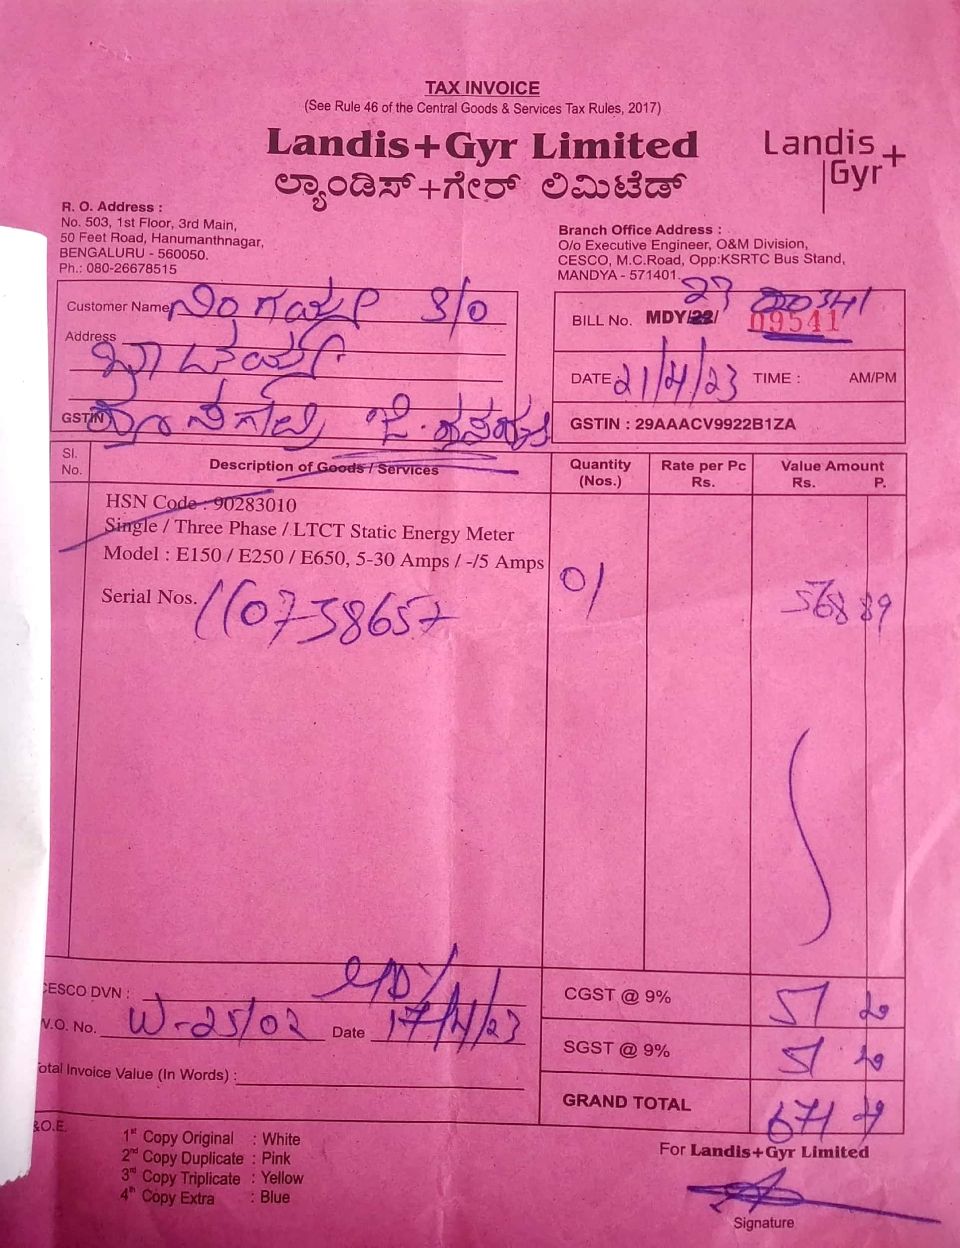 TAX INVOICE
(See Rule 46 of the Central Goods & Services Tax Rules, 2017)
Landis+Gyr Limited
ಲ್ಯಾಂಡಿಸ್+ಗೇರ್ ಲಿಮಿಟೆಡ್
Landis+
Gyr
R. O. Address :
No. 503, 1st Floor, 3rd Main,
50 Feet Road, Hanumanthnagar,
BENGALURU - 560050.
Ph.: 080-26678515
Branch Office Address :
O/o Executive Engineer, O&M Division,
CESCO, M.C.Road, Opp:KSRTC Bus Stand,
MANDYA - 571401.
Customer Name S/O
Address
GSTIN
BILL No. MDY/22/ 23 09541
DATE : 21/4/23 TIME : AM/PM
GSTIN : 29AAACV9922B1ZA
Sl. No. Description of Goods / Services Quantity (Nos.) Rate per Pc Rs. Value Amount Rs. P.
HSN Code : 90283010
Single / Three Phase / LTCT Static Energy Meter
Model : E150 / E250 / E650, 5-30 Amps / -/5 Amps
Serial Nos. 110738657 01 568 89
CESCO DVN :
W.O. No. W-25/02 Date 17/4/23
Total Invoice Value (In Words) :
CGST @ 9% 51 20
SGST @ 9% 51 20
GRAND TOTAL 671 29
&O.E.
1st Copy Original : White
2nd Copy Duplicate : Pink
3rd Copy Triplicate : Yellow
4th Copy Extra : Blue
For Landis+Gyr Limited
Signature